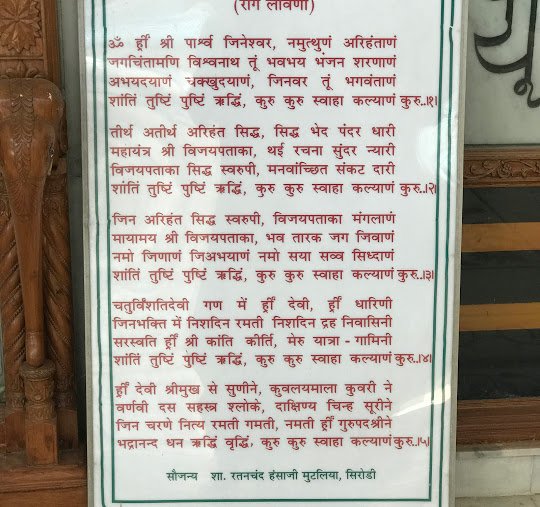 (राग लावणी)
ॐ ह्रीँ श्री पार्श्व जिनेश्वर, नमुत्थुणं अरिहंताणं
जगचिंतामणि विश्वनाथ तूं भवभय भंजन शरणाणं
अभयदयाणं चक्खुदयाणं, जिनवर तूं भगवंताणं
शांतिं तुष्टिं पुष्टिं ऋद्धिं, कुरु कुरु स्वाहा कल्याणं कुरु..।१।
तीर्थ अतीर्थ अरिहंत सिद्ध, सिद्ध भेद पंदर धारी
महायंत्र श्री विजयपताका, थई रचना सुंदर न्यारी
विजयपताका सिद्ध स्वरुपी, मनवांच्छित संकट दारी
शांतिं तुष्टिं पुष्टिं ऋद्धिं, कुरु कुरु स्वाहा कल्याणं कुरु..।२।
जिन अरिहंत सिद्ध स्वरुपी, विजयपताका मंगलाणं
मायामय श्री विजयपताका, भव तारक जग जिवाणं
नमो जिणाणं जिअभयाणं नमो सया सव्व सिध्दाणं
शांतिं तुष्टिं पुष्टिं ऋद्धिं, कुरु कुरु स्वाहा कल्याणं कुरु..।३।
चतुर्विंशतिदेवी गण में ह्रीँ देवी, ह्रीँ धारिणी
जिनभक्ति में निशदिन रमती निशदिन द्रह निवासिनी
सरस्वति ह्रीँ श्री कांति कीर्ति, मेरु यात्रा - गामिनी
शांतिं तुष्टिं पुष्टिं ऋद्धिं, कुरु कुरु स्वाहा कल्याणं कुरु..।४।
ह्रीँ देवी श्रीमुख से सुणीने, कुवलयमाला कुवरी ने
वर्णवी दस सहस्त्र श्लोके, दाक्षिण्य चिन्ह सूरीने
जिन चरणे नित्य रमती गमती, नमती ह्रीँ गुरुपदश्रीने
भद्रानन्द धन ऋद्धिं वृद्धिं, कुरु कुरु स्वाहा कल्याणं कुरु..।५।
सौजन्य शा. रतनचंद हंसाजी मुटलिया, सिरोडी